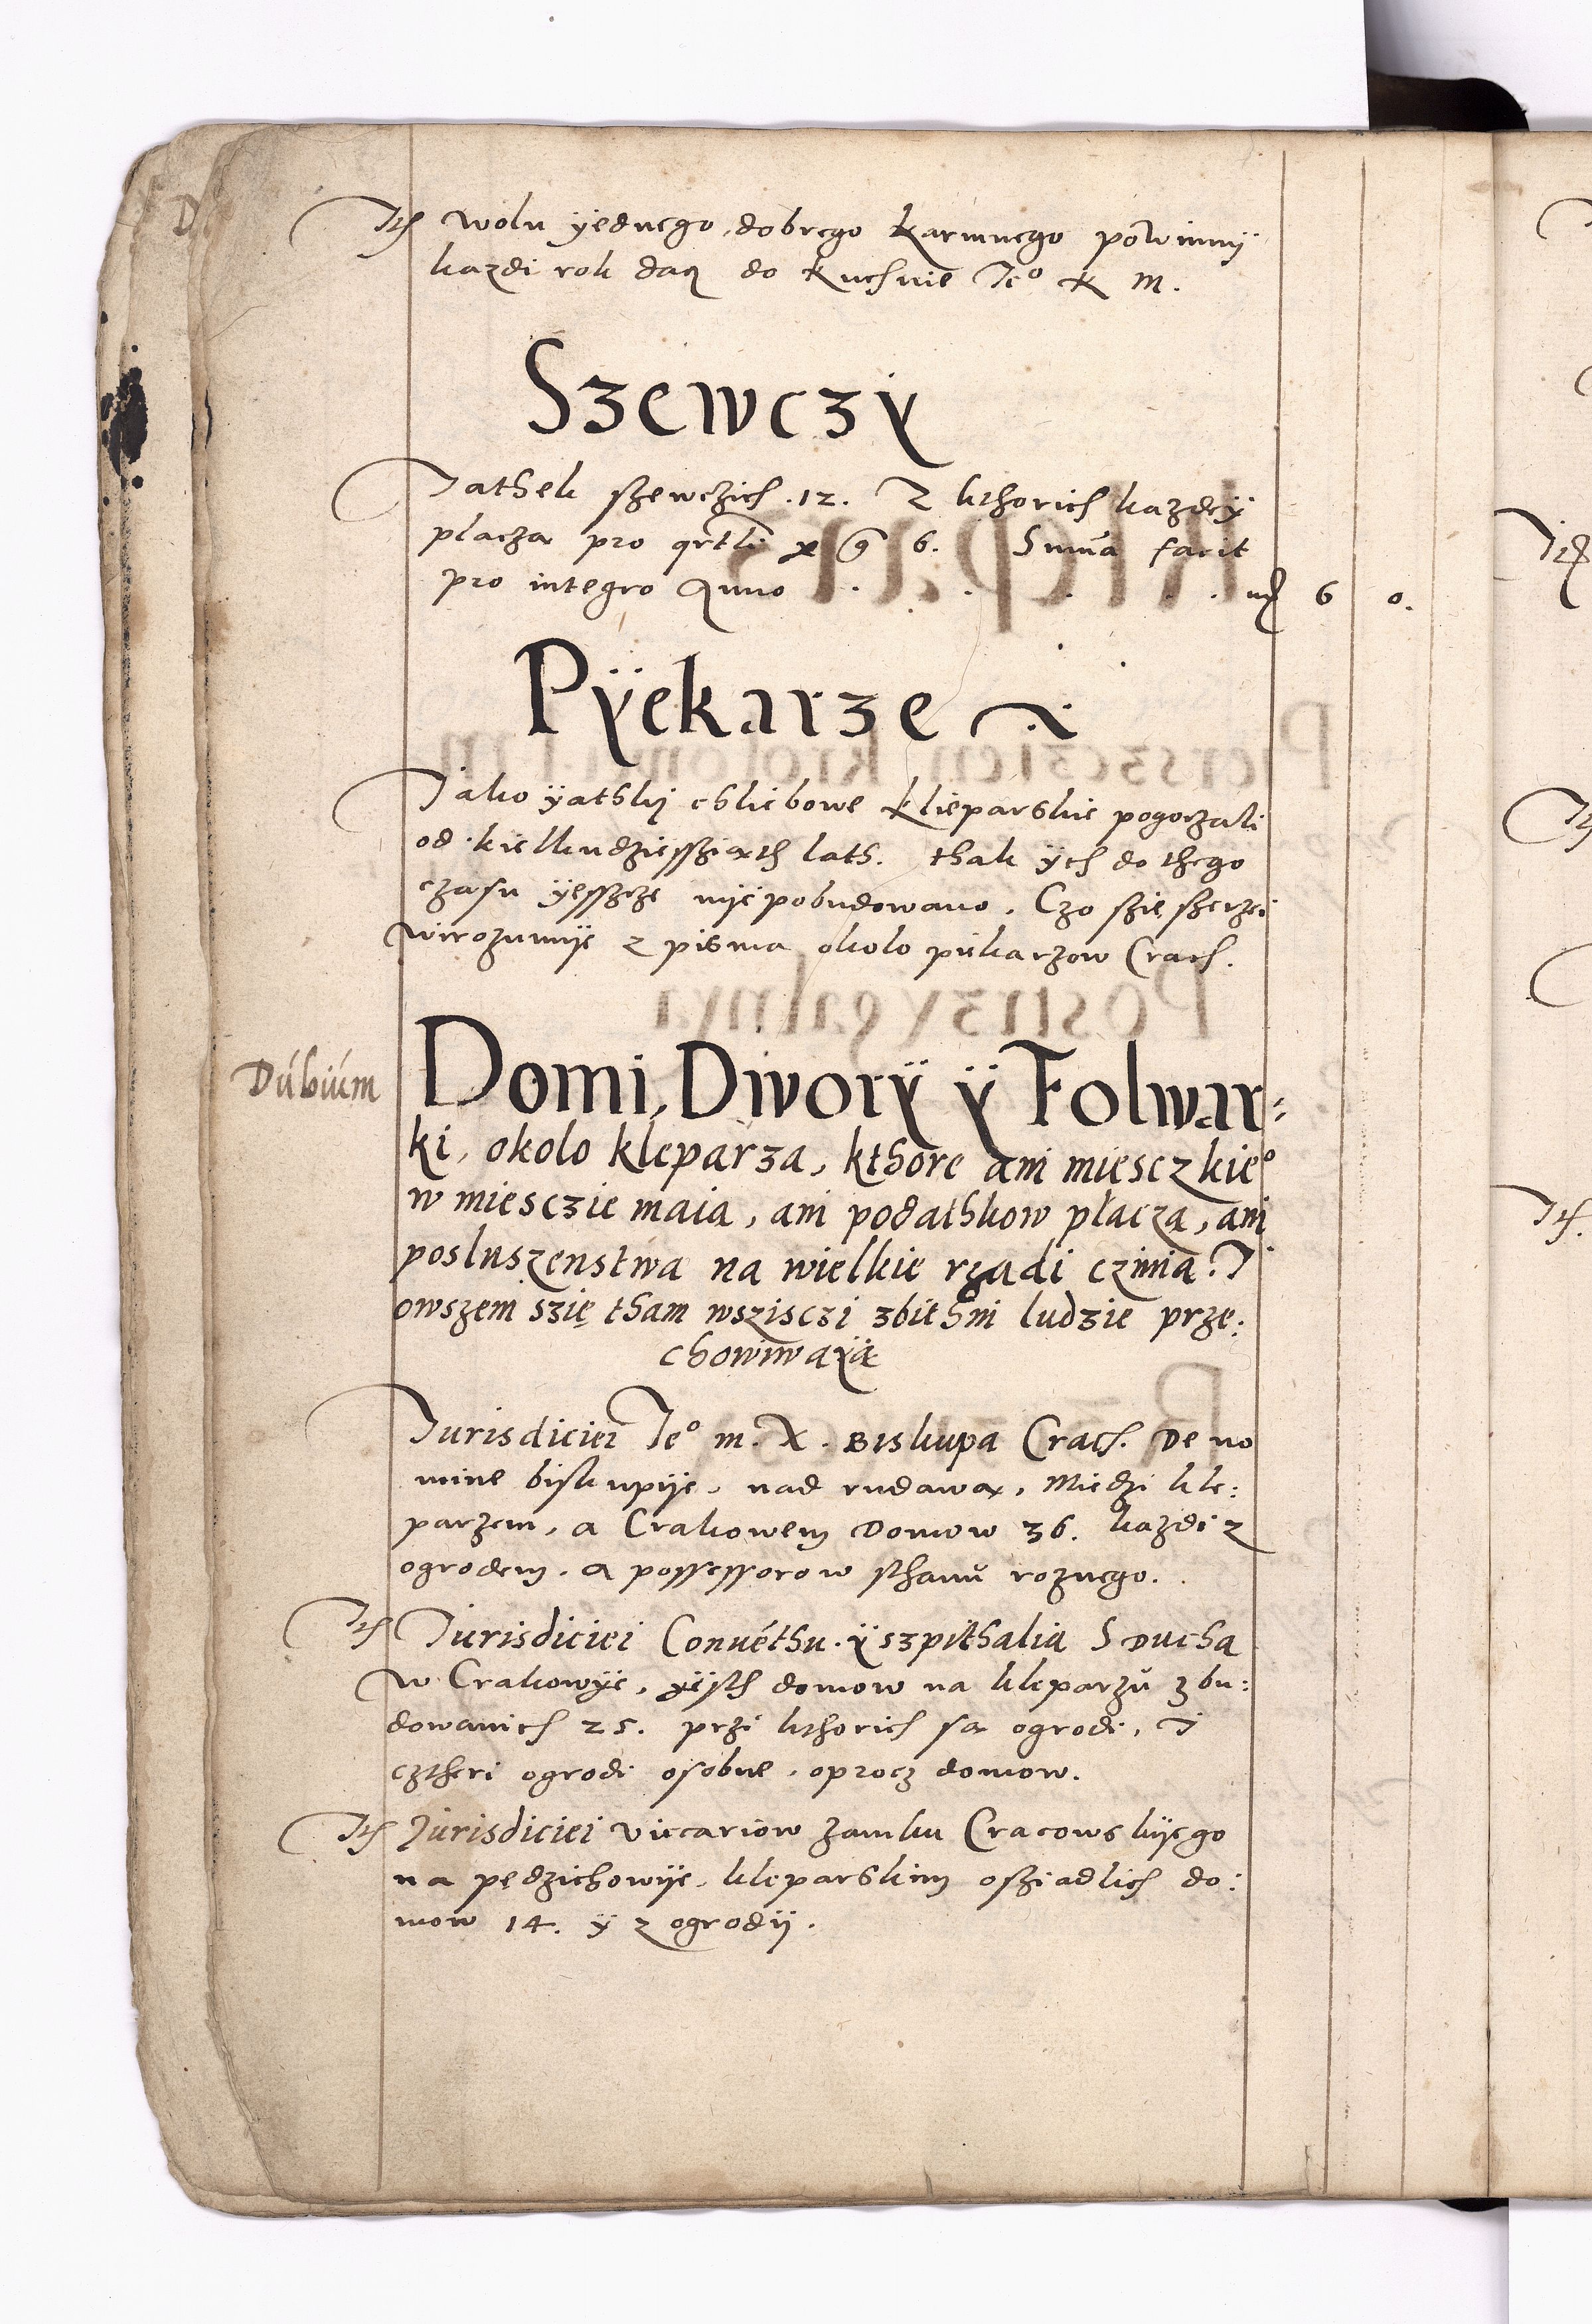 Ith wolu ÿednego dobrego karmnego powinnÿ
kazdi rok dacz do kuchnie Ie° K M.
Szewczÿ
Jathek szewczich .12. Z kthorich kazdeÿ
placza pro qrtli gr 6. Suma facit
pro integro Anno . . . . . mr 6 0.
Pÿekarze
Jako ÿathkÿ chliebowe klieparskie pogorzali
od kielkudziessziath lath. thak ÿch do thego
czasu ÿessze nÿe pobudowano. Czo szie szerzei
wirozumÿe z pisma okolo piekarzow Crach.
Dubium
Domi, Dworÿ ÿ Folwar=
ki, okolo kleparza, kthore ani miesczkie°
w miesczie maia, ani podathkow płacza, ani
posluszenstwa na wielkie rządi czinia. I
owszem szię tham wszisczi zbiethni ludzie prze:
chowiwaÿa
Iurisdiciei Ie° m. X. Biskupa Crach. De no
mine biskupÿe, nad rudawa, Miedzi kle:
parzem, a Crakowem Domow 36. kazdi z
ogrodem, a possessorow sthanu roznego.
Ith Iurisdiciei Convěthu ÿ szpithalia S Ducha
w Crakowÿe, ÿesth domow na kleparzu zbu:
dowanich 25. przi kthorich sa ogrodi, I
cztheri ogrodi osobne, oprocz domow.
Ith Iurisdiciei viccariow zamku Cracowskÿego
na pedzichowÿe, kleparskim osziadlich do:
mow 14. ÿ z ogrodÿ.